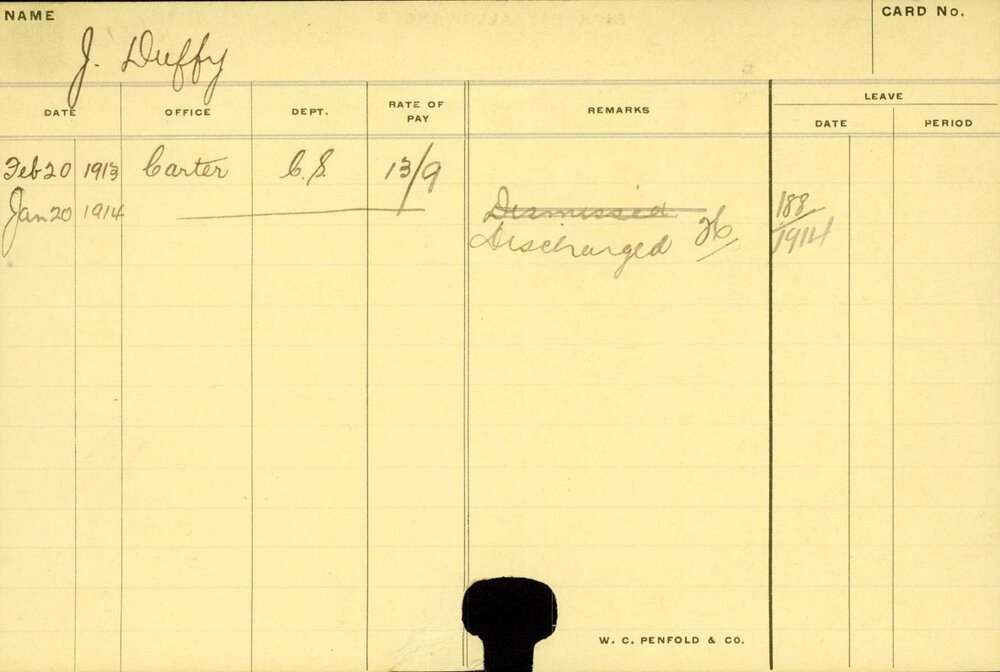 NAME
CARD No.
J. Duffy
DATE OFFICE DEPT. RATE OF PAY REMARKS LEAVE
DATE PERIOD
Feb 20 1913 Carter C.S. 13/9
Jan 20 1914 Dismissed 188/1914
Discharged
W. C. PENFOLD & CO.